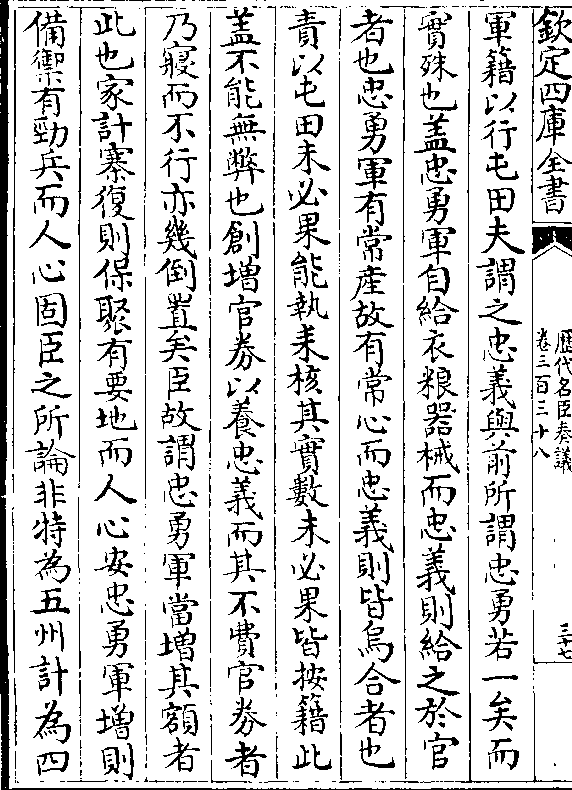 欽定四庫全書
歷代名臣奏議
卷三百三十八
三七
軍籍以行屯田夫謂之忠義與前所謂忠勇若一矣而
實殊也蓋忠勇軍自給衣粮器械而忠義則給之於官
者也忠勇軍有常產故有常心而忠義則皆烏合者也
責以屯田未必果能執耒核其實數未必果皆按籍此
蓋不能無弊也創增官券以養忠義而其不費官券者
乃寢而不行亦幾倒置矣臣故謂忠勇軍當增其額者
此也家計寨復則保聚有要地而人心安忠勇軍增則
備禦有勁兵而人心固臣之所論非特為五州計為四